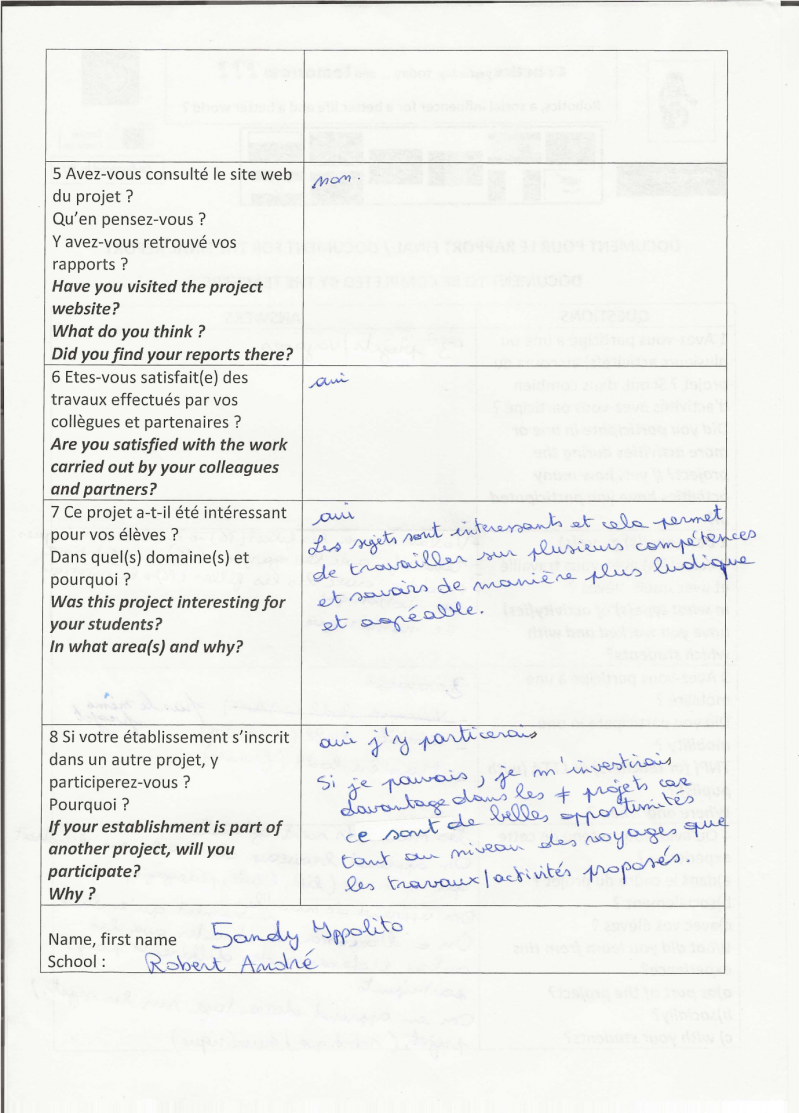 5 Avez-vous consulté le site web
du projet ?
Qu'en pensez-vous ?
Y avez-vous retrouvé vos
rapports ?
Have you visited the project
website?
What do you think ?
Did you find your reports there?
non.
6 Etes-vous satisfait(e) des
travaux effectués par vos
collègues et partenaires ?
Are you satisfied with the work
carried out by your colleagues
and partners?
oui
7 Ce projet a-t-il été intéressant
pour vos élèves ?
Dans quel(s) domaine(s) et
pourquoi ?
Was this project interesting for
your students?
In what area(s) and why?
oui
Les sujets sont interessants et cela permet
de travailler sur plusieurs compétences
et savoirs de manière plus ludique
et agréable.
8 Si votre établissement s'inscrit
dans un autre projet, y
participerez-vous ?
Pourquoi ?
If your establishment is part of
another project, will you
participate?
Why ?
oui j'y particerais
Si je pouvais, je m'investirais
davantage dans les ≠ projets car
ce sont de belles opportunités
tant au niveau des voyages que
les travaux/activités proposés.
Name, first name Sandy Yppolito
School : Robert André